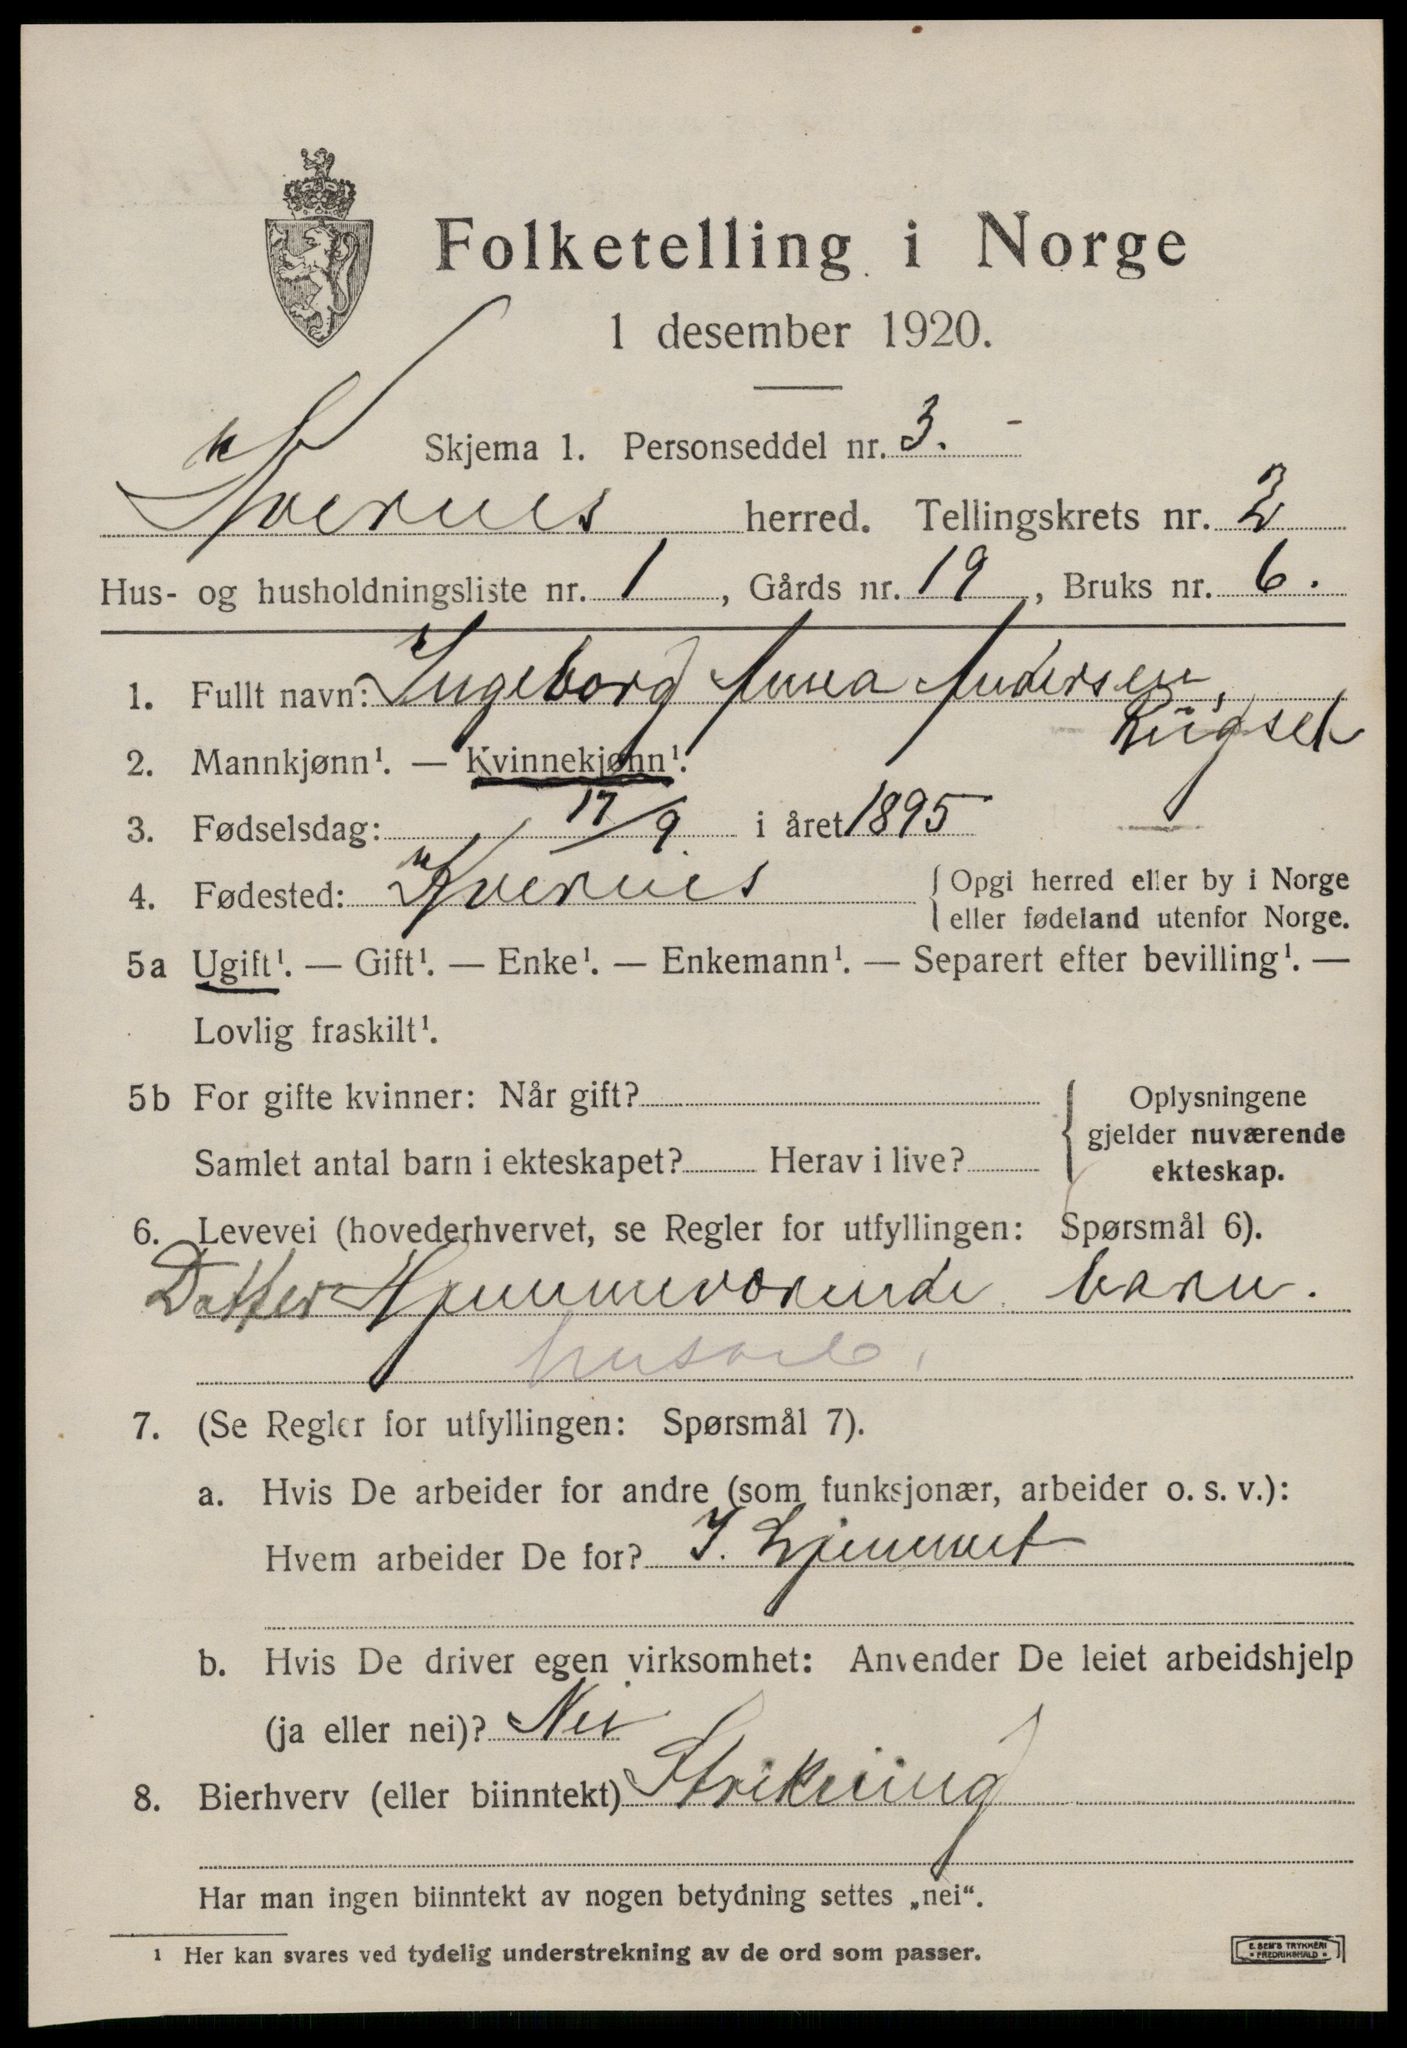 Folketelling i Norge
1 desember 1920.
Skjema 1. Personseddel nr. 3.
Kvernes herred. Tellingskrets nr. 2
Hus- og husholdningsliste nr. 1, Gårds nr. 19, Bruks nr. 6.
1. Fullt navn: Ingeborg Anna Andersen,
2. Mannkjønn¹. — Kvinnekjønn¹.
3. Fødselsdag: 17/9 i året 1895
4. Fødested: Kvernes { Opgi herred eller by i Norge
eller fødeland utenfor Norge.
5a Ugift¹. — Gift¹. — Enke¹. — Enkemann¹. — Separert efter bevilling¹. —
Lovlig fraskilt¹.
5b For gifte kvinner: Når gift? { Oplysningene
gjelder nuværende
Samlet antal barn i ekteskapet? Herav i live? ekteskap.
6. Levevei (hovederhvervet, se Regler for utfyllingen: Spørsmål 6).
Datter Hjemmeværende barn.
husarb.
7. (Se Regler for utfyllingen: Spørsmål 7).
a. Hvis De arbeider for andre (som funksjonær, arbeider o. s. v.):
Hvem arbeider De for? I. Hjemmet
b. Hvis De driver egen virksomhet: Anvender De leiet arbeidshjelp
(ja eller nei)? Nei
8. Bierhverv (eller biinntekt) Strikning
Har man ingen biinntekt av nogen betydning settes „nei“.
¹ Her kan svares ved tydelig understrekning av de ord som passer.
E. SEM'S TRYKKERI
• FREDRIKSHALD •